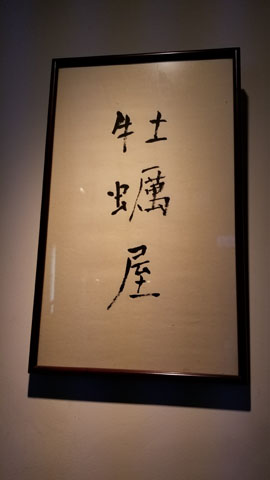 牡蠣屋